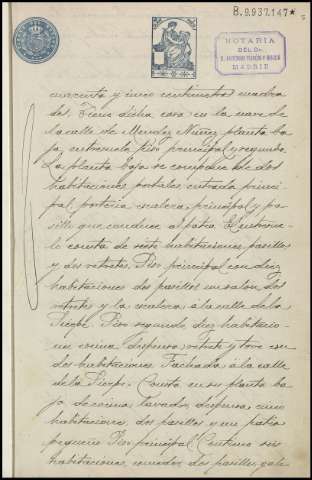 B.9.937.147*
NOTARIA
DEL DR.
MADRID
cuarenta y cinco centímetros cuadra
dos. Tiene dicha casa en la nave de
la calle de Mendez Nuñez planta ba
ja, entresuelo, piso principal y segundo.
La planta baja se compone de dos
habitaciones portales entrada princi
pal, portería escalera, principal y pa
sillo que conduce al patio. El entresue
lo consta de siete habitaciones pasillos
y dos retretes. Piso principal con diez
habitaciones dos pasillos un salon, dos
retretes y la escalera á la calle de la
Piso segundo diez habitacio-
nes cocina despensa retrete y torre con
dos habitaciones. Fachada á la calle
de la Consta en su planta ba
ja de cocina, lavador, despensa, cinco
habitaciones dos pasillos y un patio
pequeño Piso principal. Contiene seis
habitaciones, comedor, dos pasillos, gale